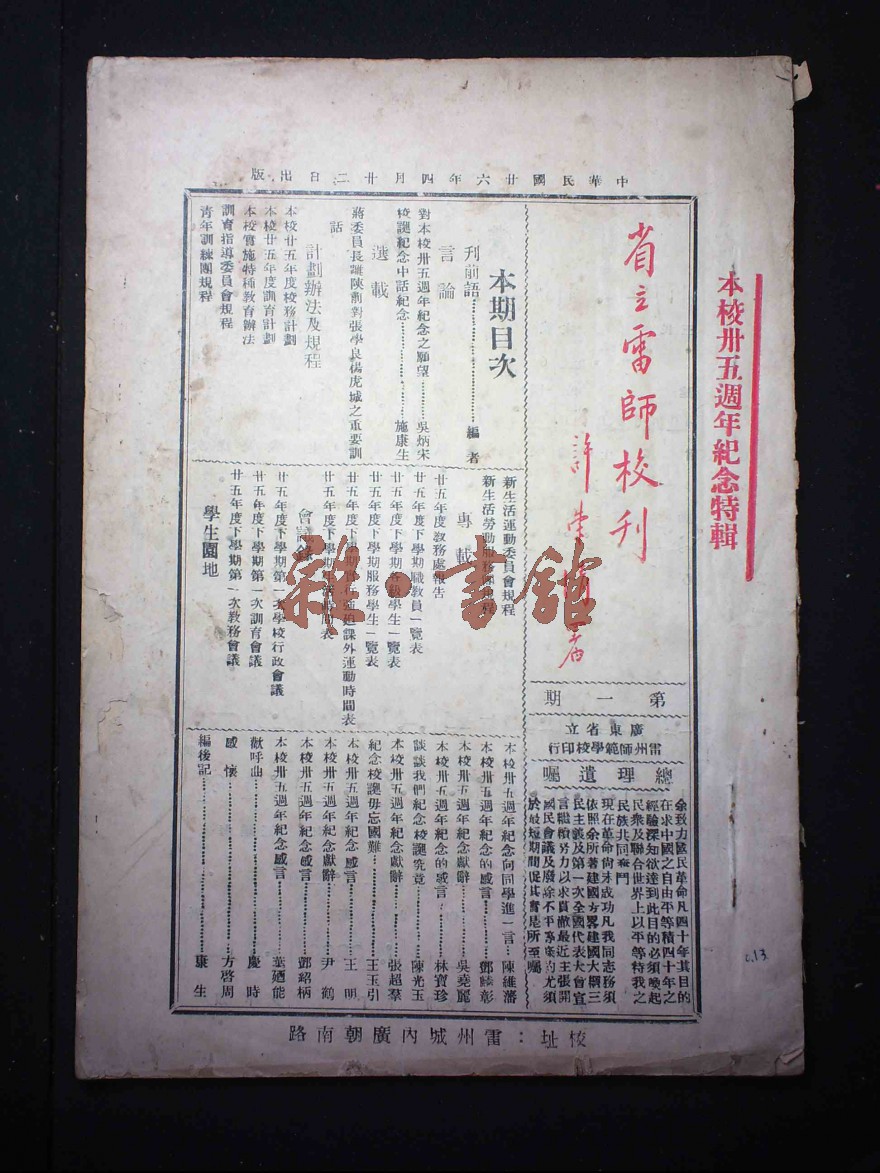 本校卅五週年紀念特輯
中華民國廿六年四月廿二日出版
省立雷師校刊
第一期
廣東省立
雷州師範學校印行
總理遺囑
余致力國民革命凡四十年其目的
在求中國之自由平等積四十年之
經驗深知欲達到此目的必須喚起
民衆及聯合世界上以平等待我之
民族共同奮鬥
現在革命尚未成功凡我同志務須
依照余所著建國方畧建國大綱三
民主義及第一次全國代表大會宣
言繼續努力以求貫徹最近主張開
國民會議及廢除不平等條約尤須
於最短期間促其實是所至囑
本期目次
刊前語……編者
言論
對本校卅五週年紀念之願望……吳炳宋
校誕紀念中話紀念……施康生
選載
蔣委員長離陝前對張學良楊虎城之重要訓
話
計劃辦法及規程
本校廿五年度校務計劃
本校廿五年度訓育計劃
本校實施特種教育辦法
訓育指導委員會規程
青年訓練團規程
新生活運動委員會規程
新生活勞動服務團規程
專載
廿五年度教務處報告
廿五年度下學期職教員一覽表
廿五年度下學期各級學生一覽表
廿五年度下學期服務學生一覽表
廿五年度下學期課外運動時間表
廿五年度下學期表
會議錄
廿五年度下學期第一次學校行政會議
廿五年度下學期第一次訓育會議
廿五年度下學期第一次教務會議
學生園地
本校卅五週年紀念向同學進一言……陳維藩
本校卅五週年紀念的感言……鄧麟彰
本校卅五週年紀念獻辭……吳堯麗
本校卅五週年紀念的感言……林寶珍
談談我們紀念校誕究竟……陳光玉
本校卅五週年紀念獻辭……張超羣
紀念校誕毋忘國難……王玉引
本校卅五週年紀念感言……王明
本校卅五週年紀念獻辭……尹鶴
本校卅五週年紀念感言……鄧紹柄
本校卅五週年紀念感言……葉廼能
歡呼曲……慶時
感懷……方啓周
編後記……康生
校址：雷州城內廣朝南路
雜·書館
c.13